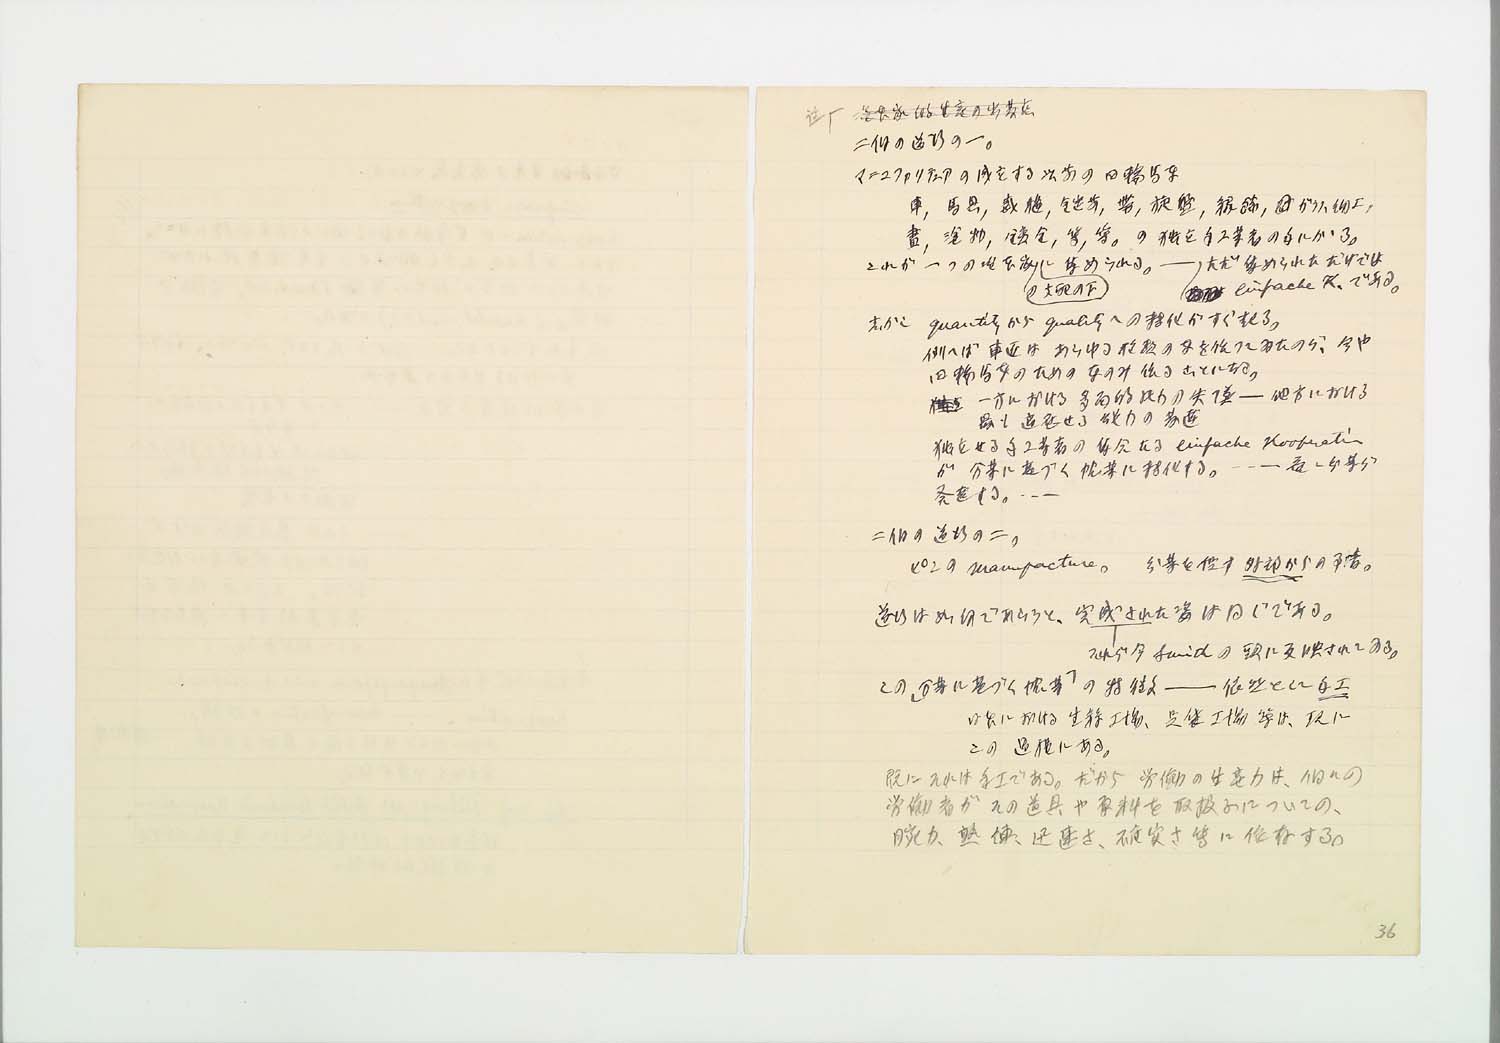 二個の道行の一。
マニュファクチュアの成立する以前の四輪馬車
車, 馬具, 裁縫, 錠前, 帯, 旋盤, 組飾, ガラス細工,
畫, 塗物, 鍍金, 等, 等。の独立手工業者の手にかゝる。
これが一つの資本家に集められる。── ただ集められただけでは
の支配の下
einfache K. である。
しかし quantity から quality への轉化がすぐ起る。
例へば車匠はあらゆる種類の車を作つてゐたのが、今や
四輪馬車のための車のみ作ることになる。
一方に於ける多面的能力の失墜 ── 他方に於ける
最も適応せる能力の発達
独立せる手工業者の集合なる einfache Kooperation
が 分業に基づく協業に轉化する。---
発達する。---
二個の道行の二。
manufacture。 分業を促す外部からの事情。
道行は如何であらうと、完成された姿は同じである。
それが今 Smith の頭に反映されてゐる。
この「分業に基づく協業」の特徴 ── 依然として手工
日本に於ける生絲工場、足袋工場等は、現に
この過程にある。
既にそれは手工である。だから労働の生産力は、個々の
労働者がその道具や原料を取扱ふについての、
腕力、熟練、迅速さ、確実さ等に依存する。
36